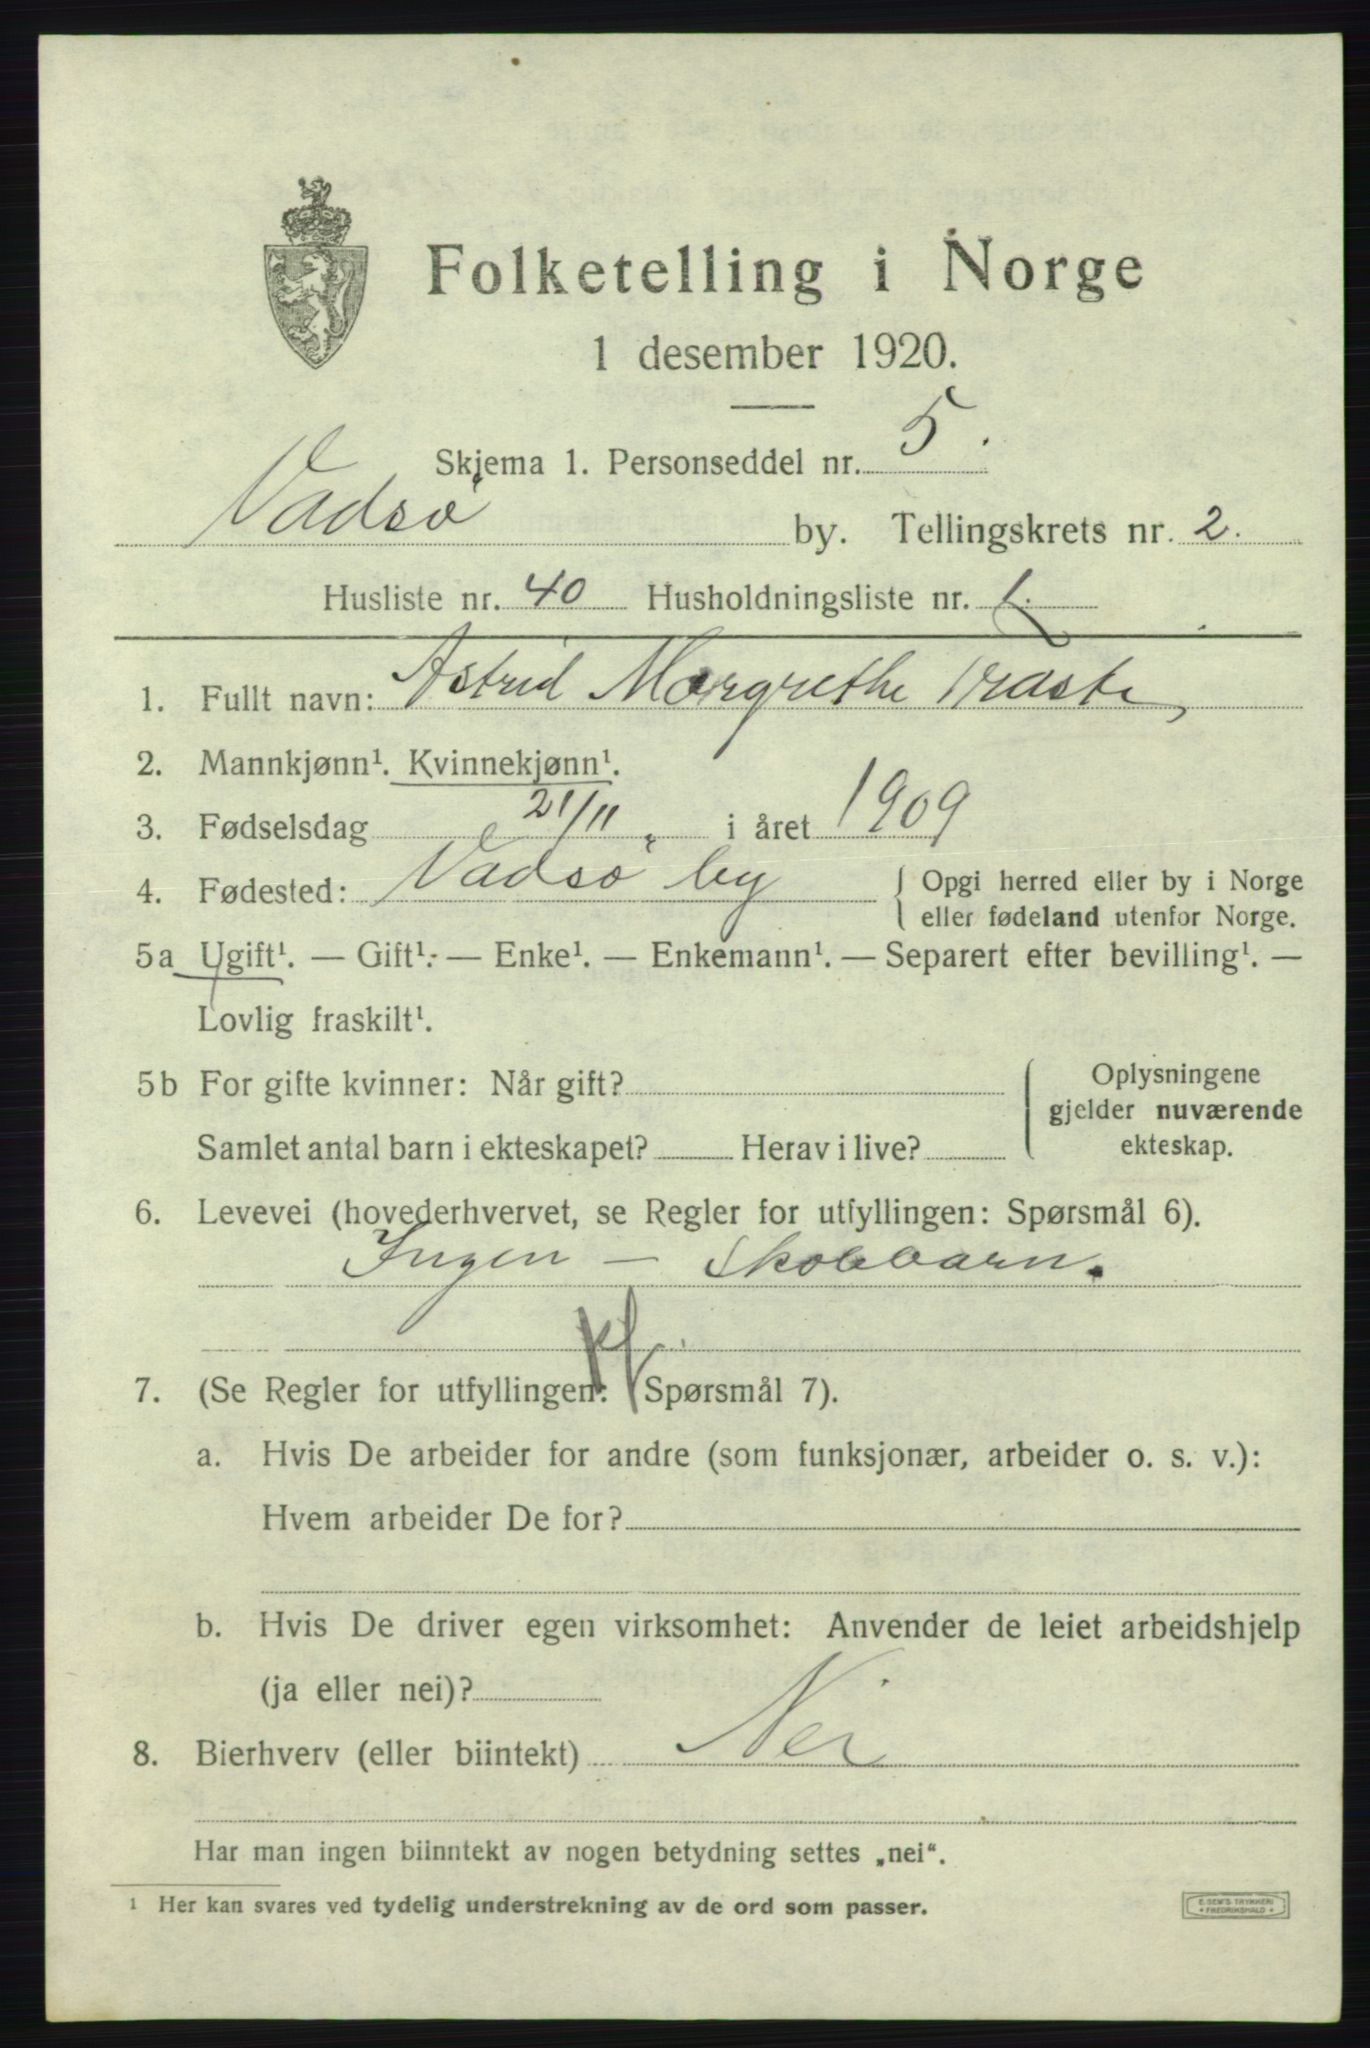 Folketelling i Norge
1 desember 1920.
Skjema 1. Personseddel nr. 5.
Vadsö by. Tellingskrets nr. 2.
Husliste nr. 40 Husholdningsliste nr. 1.
1. Fullt navn: Astrid Margrethe
2. Mannkjønn¹. Kvinnekjønn¹.
3. Fødselsdag 21/11 i året 1909
4. Fødested: Vadsö by { Opgi herred eller by i Norge
eller fødeland utenfor Norge.
5a Ugift¹. — Gift¹. — Enke¹. — Enkemann¹. — Separert efter bevilling¹. —
Lovlig fraskilt¹.
5b For gifte kvinner: Når gift? { Oplysningene
gjelder nuværende
Samlet antal barn i ekteskapet? Herav i live? ekteskap.
6. Levevei (hovederhvervet, se Regler for utfyllingen: Spørsmål 6).
Ingen — Skolebarn.
7. (Se Regler for utfyllingen: Spørsmål 7).
a. Hvis De arbeider for andre (som funksjonær, arbeider o. s. v.):
Hvem arbeider De for?
b. Hvis De driver egen virksomhet: Anvender de leiet arbeidshjelp
(ja eller nei)?
8. Bierhverv (eller biintekt) Nei
Har man ingen biinntekt av nogen betydning settes „nei“.
¹ Her kan svares ved tydelig understrekning av de ord som passer.
E. SEM'S TRYKKERI
• FREDRIKSHALD •